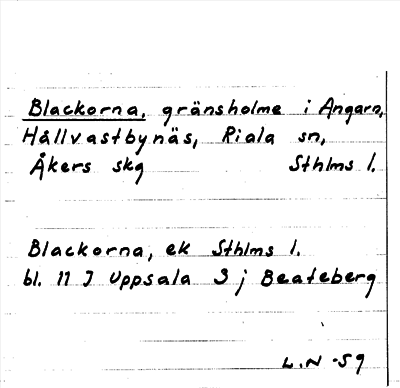 Blackorna, gränsholme i Angarn,
Hållvastbynäs, Riala sn,
Åkers skg Sthlms l.
Blackorna, ek Sthlms l.
bl. 11 I Uppsala 3 j Beateberg
L.N -59